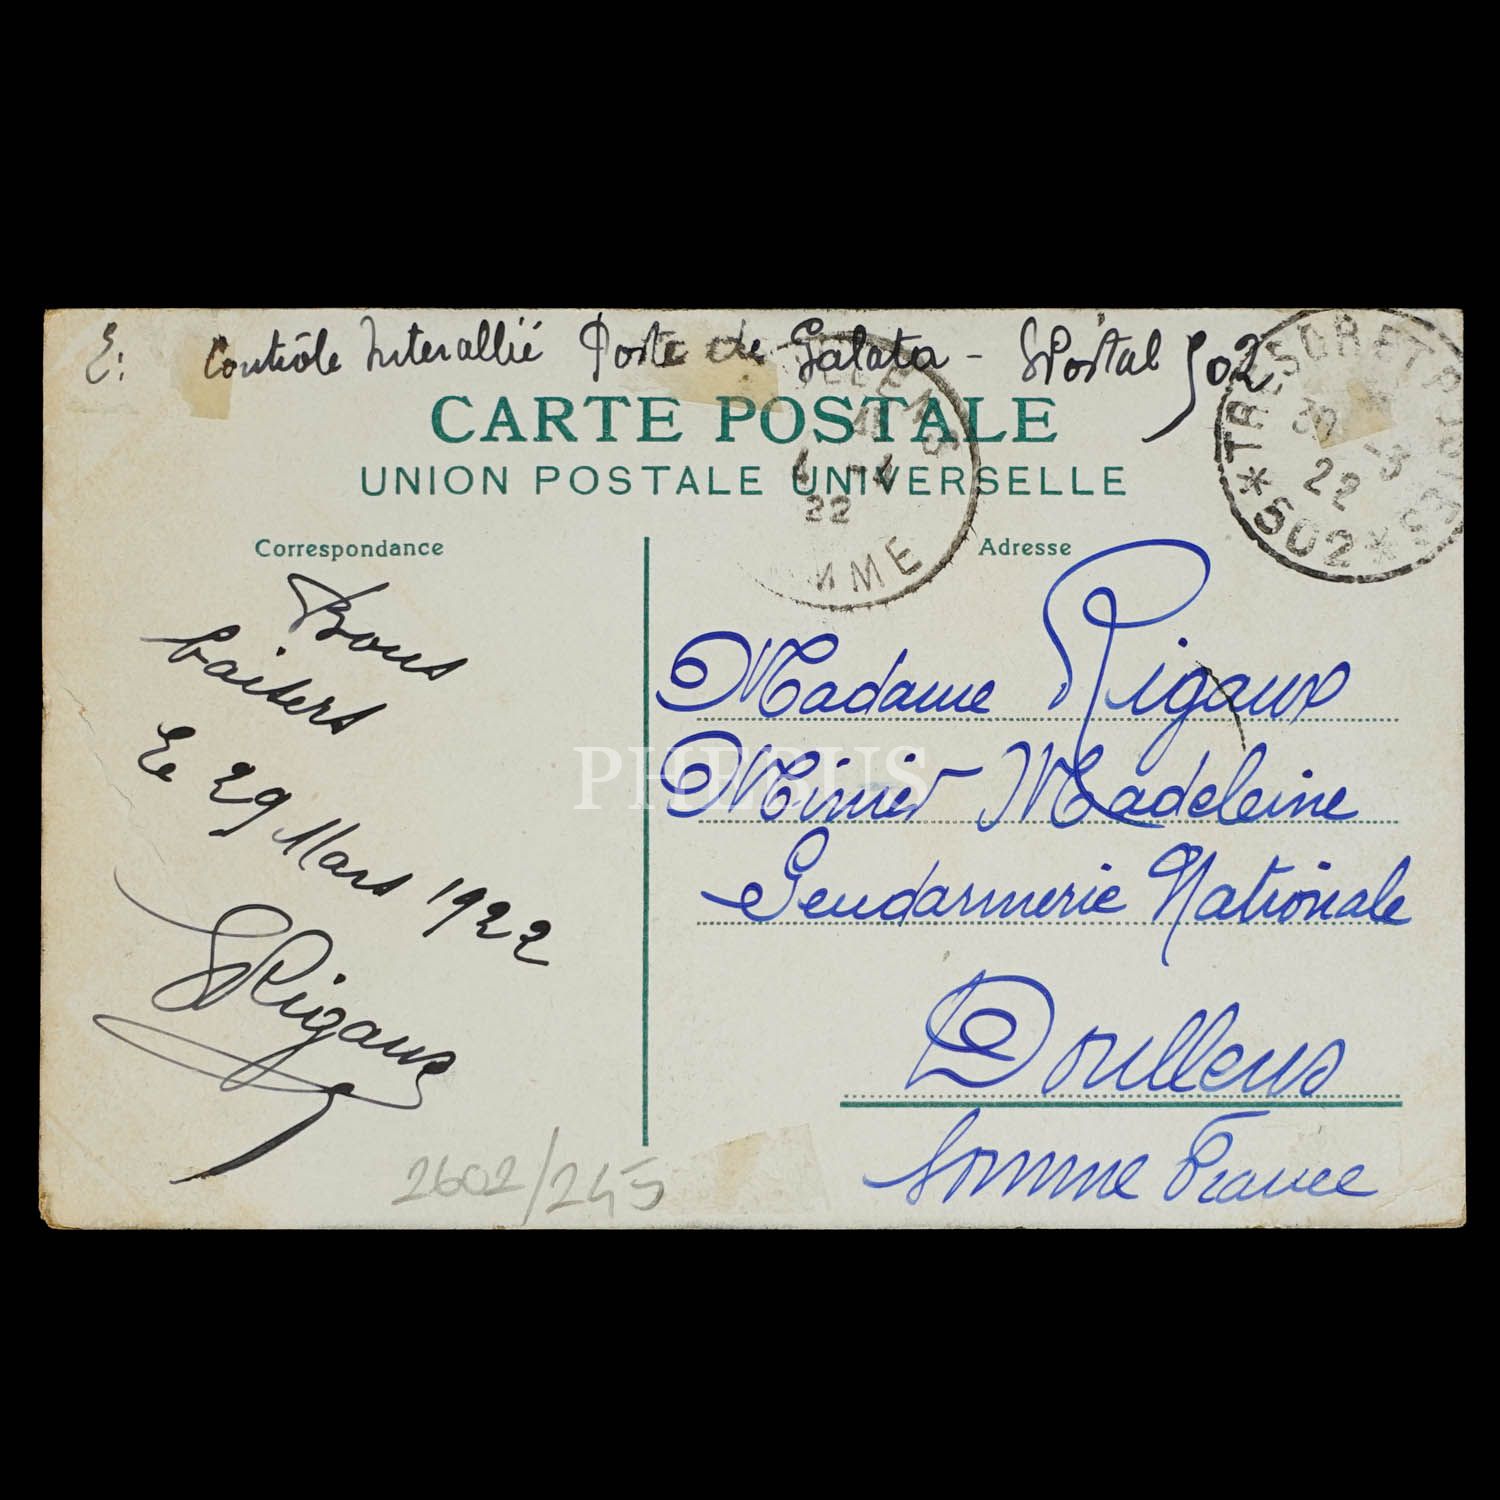 E: Contrôle Interallié Poste de Galata - SPostal 502
CARTE POSTALE
UNION POSTALE UNIVERSELLE
TRESOR ET POSTES
30 -3
22
* 502 *
4 -4
22
Correspondance
Adresse
Bons
baisers
Le 29 Mars 1922
Rigaux
Madame Rigaux
Madeleine
Gendarmerie Nationale
Doullens
Somme France
2602/245
PHEBUS